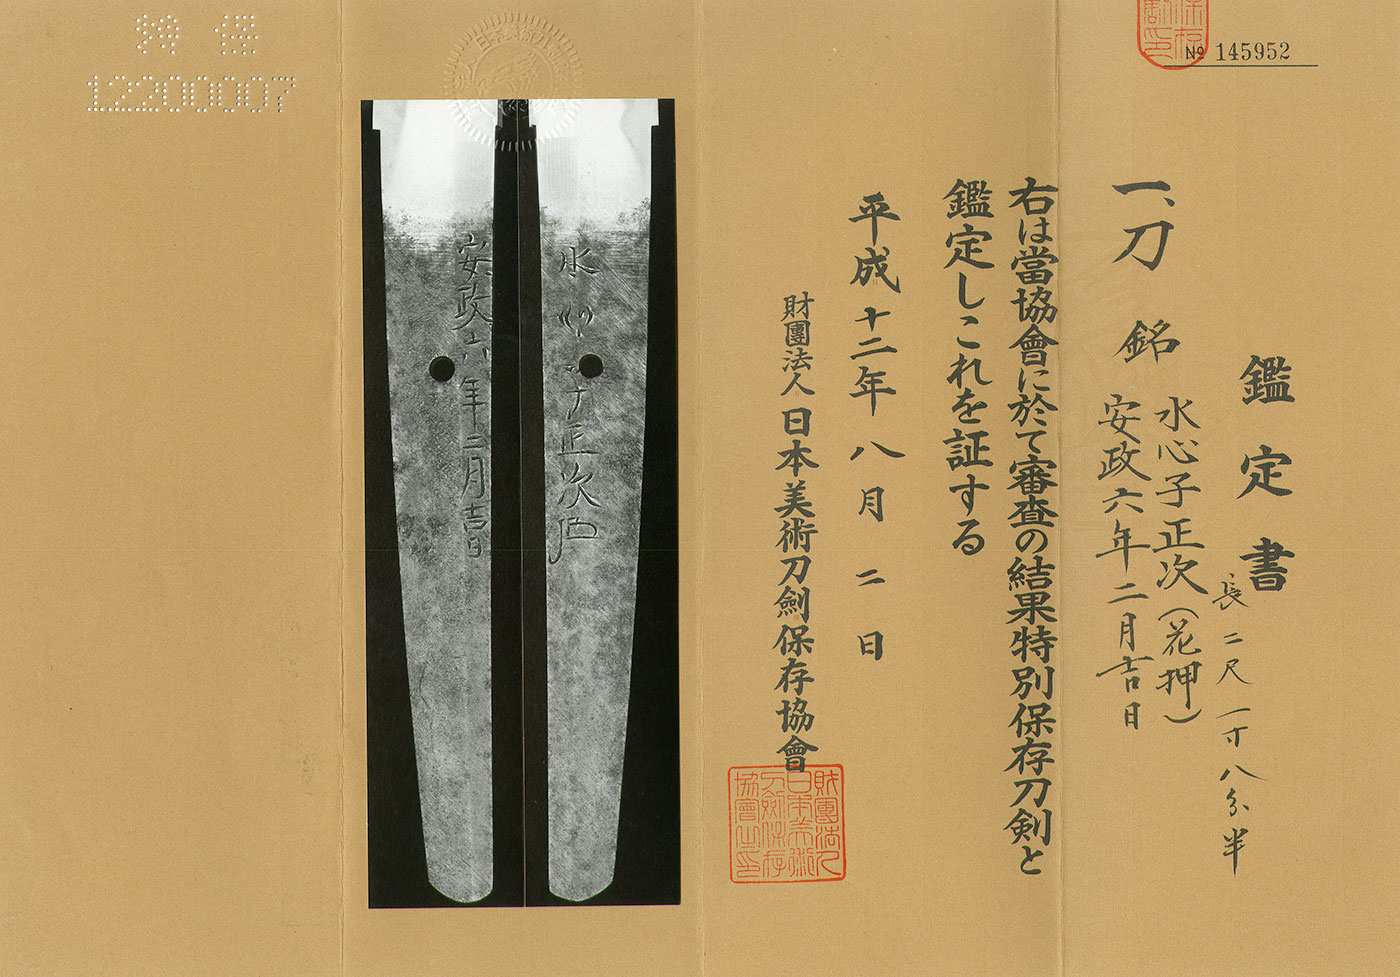 № 145952
鑑定書
一、刀 銘 水心子正次(花押)
安政六年二月吉日
長二尺一寸八分半
右は當協會に於て審査の結果特別保存刀剣と
鑑定しこれを証する
平成十二年八月二日
財團法人 日本美術刀劍保存協會
財團法人
日本美術
刀劍保存
協會之印
水心子正次
安政六年二月吉日
特保
12200007